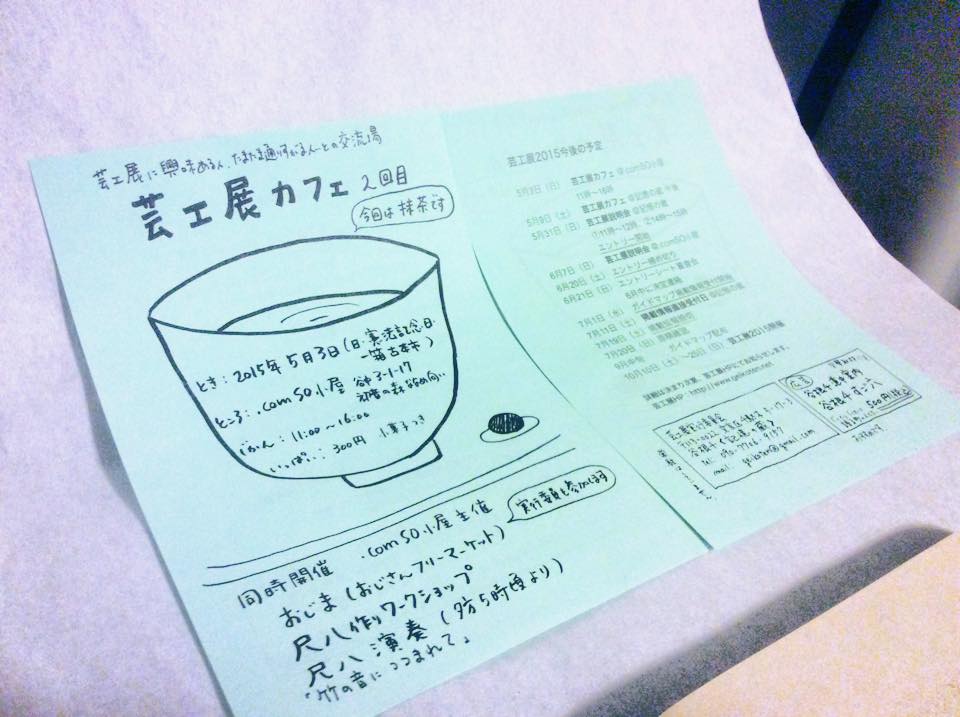 芸工展に興味ある人、たまたま通りすがる人との交流場
芸工展カフェ 2回目
今回は抹茶です
とき：2015年5月3日（日・憲法記念日・
一箱古本市）
ところ：.comSO小屋 谷中3-1-17
初音の森ななめ向い
じかん：11:00〜16:00
いっぱい：300円 お菓子つき
.comSO小屋主催
実行委員も参加します
同時開催
おじま（おじさんフリーマーケット）
尺八作りワークショップ
尺八演奏（夕方5時頃より）
「竹の音につつまれて」
芸工展2015今後の予定
5月3日（日） 芸工展カフェ＠comSO小屋
11時〜16時
5月9日（土） 芸工展カフェ＠記憶の蔵 午後
5月31日（日） 芸工展説明会＠記憶の蔵
①11時〜12時、②14時〜15時
エントリー開始
6月7日（日） 芸工展説明会＠comSO小屋
6月20日（土） エントリー締め切り
6月21日（日） エントリーシート審査会
6月中に決定連絡
7月1日（水） ガイドマップ掲載情報受付開始
7月11日（土） 掲載情報直接受付日
7月19日（日）
7月20日（月）
9月中旬 ガイドマップ配布
10月10日（土）〜25日（日） 芸工展2015開催
詳細は決まり次第、芸工展HPにてお知らせします。
芸工展HP・http://www.geikoten.net
芸工展実行委員会
tel. 090-7706-9187
mail. geikoten@gmail.com
広告
500円（税込）